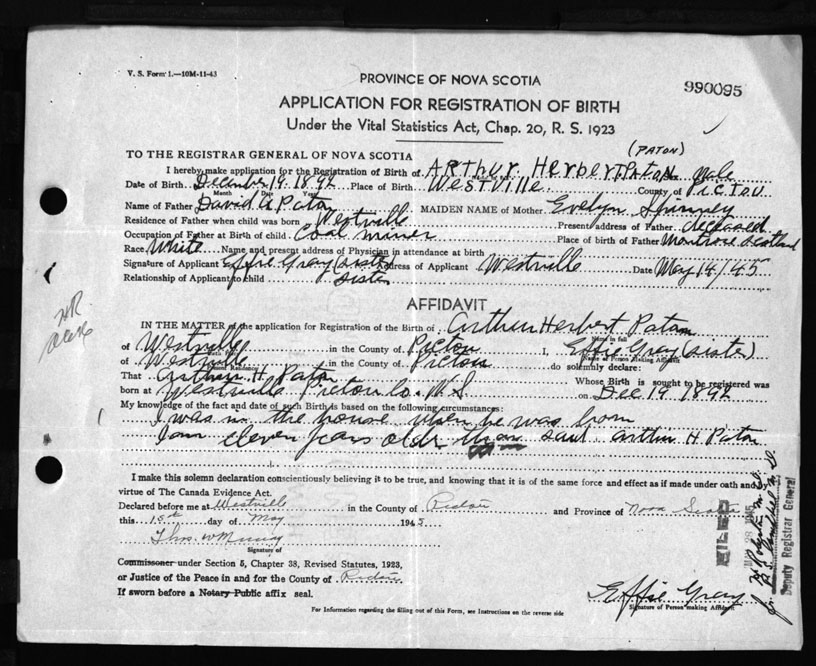 V. S. Form 1.—10M-11-43
PROVINCE OF NOVA SCOTIA
990095
APPLICATION FOR REGISTRATION OF BIRTH
Under the Vital Statistics Act, Chap. 20, R. S. 1923
(PATON)
TO THE REGISTRAR GENERAL OF NOVA SCOTIA
I hereby make application for the Registration of Birth of Arthur Herbert Paton Male
Date of Birth December 19. 1892 Place of Birth Westville County of Pictou
Month Date Year
Name of Father David A Paton MAIDEN NAME of Mother Evelyn Spinney
Residence of Father when child was born Westville Present address of Father deceased
Occupation of Father at Birth of child Coal miner Place of birth of Father Montrose Scotland
Race White Name and present address of Physician in attendance at birth
Signature of Applicant Effie Gray (sister) Address of Applicant Westville Date May 14/45
Relationship of Applicant to child sister
AFFIDAVIT
IN THE MATTER of the application for Registration of the Birth of Arthur Herbert Paton
of Westville in the County of Pictou I, Effie Gray (sister)
Name of Person Making Affidavit
of Westville in the County of Pictou do solemnly declare:
That Arthur H. Paton Whose Birth is sought to be registered was
born at Westville Pictou Co. N.S. on Dec 19 1892
My knowledge of the fact and date of such Birth is based on the following circumstances:
I was in the house when he was born
I am eleven years older than said Arthur H Paton
I make this solemn declaration conscientiously believing it to be true, and knowing that it is of the same force and effect as if made under oath and by
virtue of The Canada Evidence Act.
Declared before me at Westville in the County of Pictou and Province of Nova Scotia
this 15th day of May 1945
Thos. W Murray
Signature of
Commissioner under Section 5, Chapter 38, Revised Statutes, 1923,
or Justice of the Peace in and for the County of Pictou
If sworn before a Notary Public affix seal.
Effie Gray
Signature of Person making Affidavit
For Information regarding the filling out of this Form, see Instructions on the reverse side
FILED
Deputy Registrar General